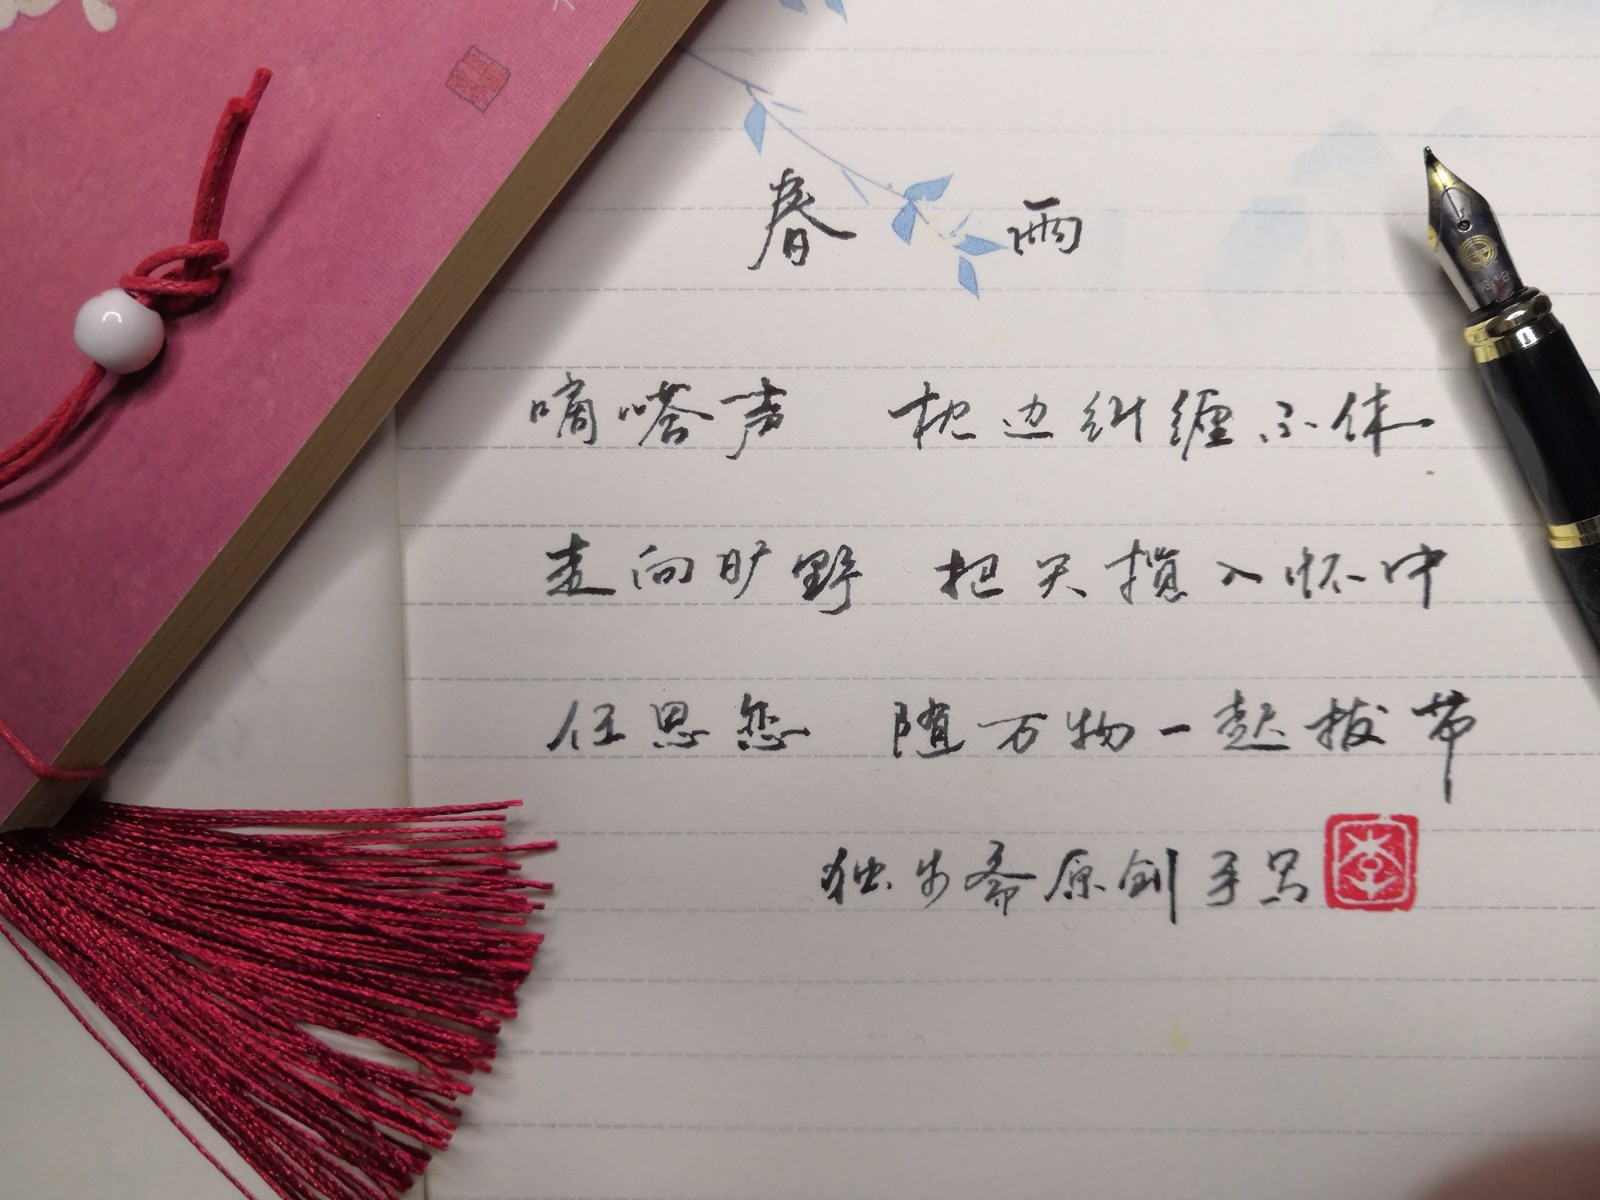 春雨
嘀嗒声 枕边纠缠不休
走向旷野 把天揽入怀中
任思愁 随万物一起拔节
独步斋原创手写